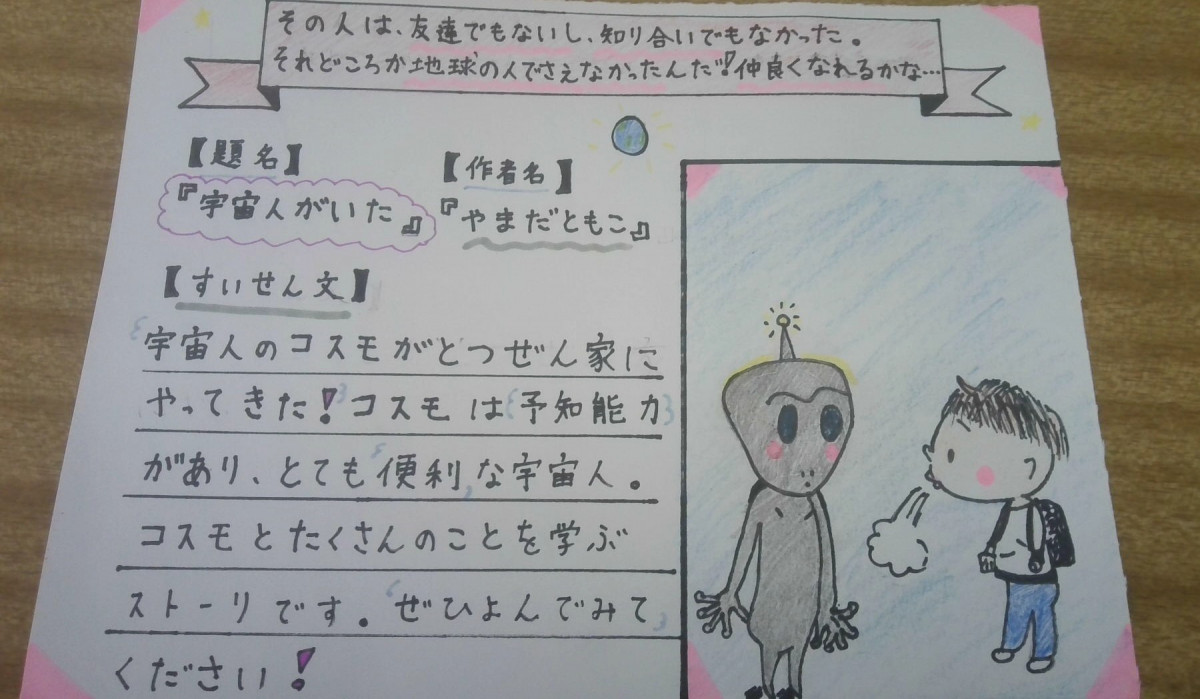 その人は、友達でもないし、知り合いでもなかった。
それどころか地球の人でさえなかったんだ!仲良くなれるかな…
【題名】
『宇宙人がいた』
【作者名】
『やまだともこ』
【すいせん文】
宇宙人のコスモがとつぜん家に
やってきた!コスモは予知能力
があり、とても便利な宇宙人。
コスモとたくさんのことを学ぶ
ストーリです。ぜひよんでみて
ください!